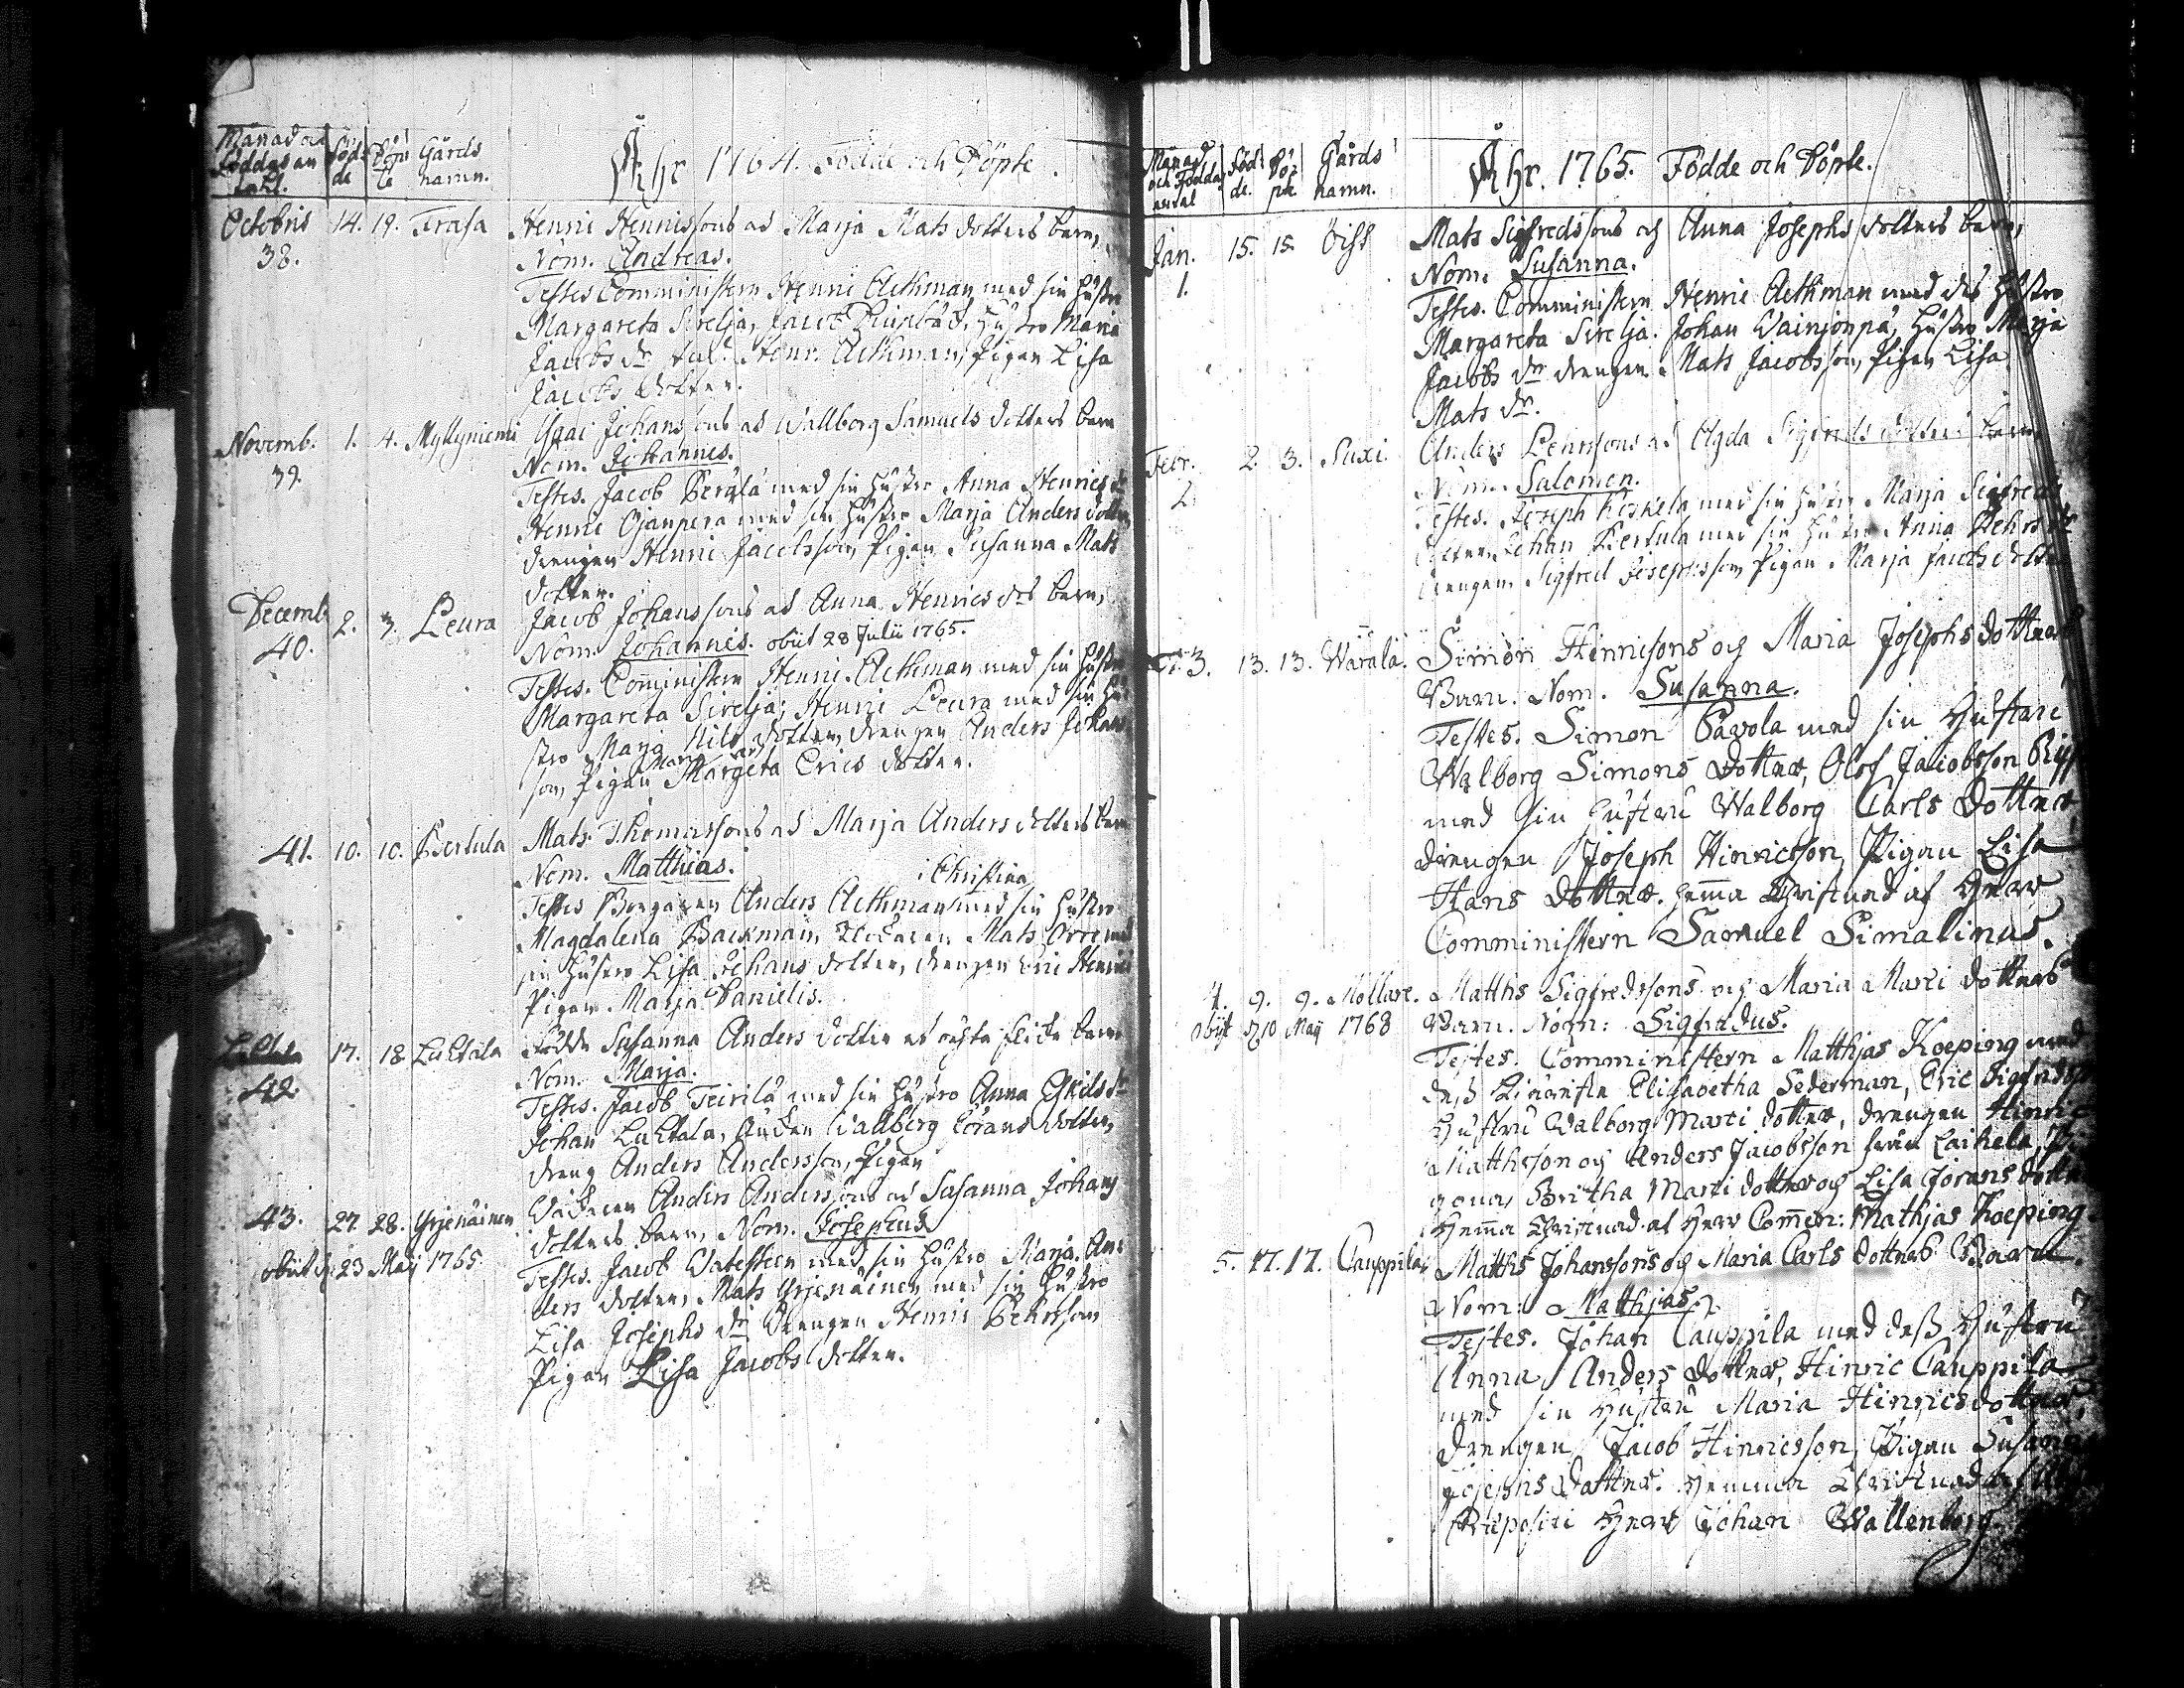 Månad och föddas an tahl. Föd de Döp te Gårds namn. Åhr 1764. Födde och Döpte.
Octobris 14. 19. Trasa Henric Henricssons och Marja Mats dotters barn,
38. Nom. Andreas.
Testes Comministern Henric Aethman med sin hustro
Margareta Sirelja, Jacob hustro Maria
Jacobs dr Henr. Aethman, Pigan Lisa
Jacobs dotter.
Novemb. 1. 4. Myllyniemi Johanssons och Wallborg Samuels dotters barn
39. Nom. Johannes.
Testes. Jacob Perälä med sin hustro Anna Henrics dr
Henric Ojanpera med sin hustro Marja Anders dotter,
drengen Henric Jacobsson, Pigan Susanna Mats
dotter.
Decemb. 2. 3. Peura Jacob Johanssons och Anna Henrics drs barn,
40. Nom. Johannes. obiit 28 Julii 1765.
Testes. Comministern Henric Aethman med sin hustro
Margareta Sirelja; Henric Peura med sin hu
stro Marja Nils dotter, drengen Anders Johans
son, Pigan Margeta Erics dotter.
41. 10. 10. Pertula Mats Thomassons och Marja Anders dotters barn
Nom. Matthias. Christina
Testes Borgaren Anders Aethman med sin hustro
Magdalena Backman, Mats Orre med
sin hustro Lisa Johans dotter, drengen Eric Henrics
Pigan Marja Danielis.
17. 18. Luhtala Susanna Anders dotters barn
42. Nom. Marja.
Testes. Jacob Teirilä med sin hustro Anna Eskils dr
Johan Luhtala, Wallborg Görans dotter,
dreng Anders Andersson, Pigan
43. 27. 28. Yrjenäinen Anders Anderssons och Susanna Johans
dotters barn, Nom. Josephus.
obiit d. 23 Maij 1765. Testes. Jacob med sin hustro Marja An-
ders dotter, Mats Yrjenäinen med sin hustro
Lisa Josephs dr Drengen Henric Pehrsson
Pigan Lisa Jacobs dotter.
Månad och Födda antal Föd: de. Döp: pte Gårds namn. Åhr. 1765. Födde och Döpte.
Jan. 15. 15. Öist Mats Sigfredssons och Anna Josephs dotters barn,
1. Nom. Susanna.
Testes. Comministern Henric Aethman med des hustro
Margareta Sirelja. Johan Wainjonpä, hustro Marja
Jacobs dr drengen Mats Jacobsson, Pigan Lisa
Mats dr.
Febr. 2. 3. Suxi. Anders och Agda Sigfreds dotters barn,
2 Nom. Salomon.
Testes. Joseph Koskela med sin hustro Marja Sigfreds
dotter, Johan Pertula med sin hustro Anna Pehrs dr
drengen Sigfred Josephsson, Pigan Marja Jacobs dotter.
3. 13. 13. Wärälä. Simon Hinricsons och Maria Josephs dotters
Barn. Nom. Susanna.
Testes. Simon Pavola med sin Hustru
Walborg Simons Dotter, Olof Jacobsson
med sin hustru Walborg Carls Dotter,
drengen Joseph Hinricsson, Pigan Lisa
Hans Dotter. hema Christnad af Herr
Comministern Samuel Simalinus.
4. 9. 9. Mollare. Matths Sigfredssons och Maria Matti dotters
obijt d. 10 Maij 1768 Barn. Nom: Sigfredus.
Testes. Comministern Matthjas Koeping med
dess Elisabetha Sederman, Eric Sigfredsson
Hustru Walborg Matti dotter, drengen Hinric
Matthsson och Anders Jacobsson från Laikela, Pi
gona, Britha Matti dotter och Lisa Jörans dotter
Hema Christnad af Herr Comen: Mathjas Koeping
5. 17. 17. Cauppila, Matths Johanssons och Maria Carls dotters Barn.
Nom: Matthjas.
Testes. Johan Cauppila med dess Hustru
Anna Anders Dotter, Hinric Cauppila
med sin Hustru Maria Hinrics dotter,
drengen Jacob Hinricsson, Pigan Susanna
Josephs Dotter. Hemma Christnad af
Praepositi Herr Johan Wallenberg.